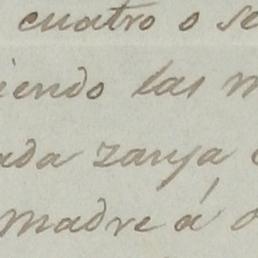 cuatro o se
iendo las m
ada zanja
madre á